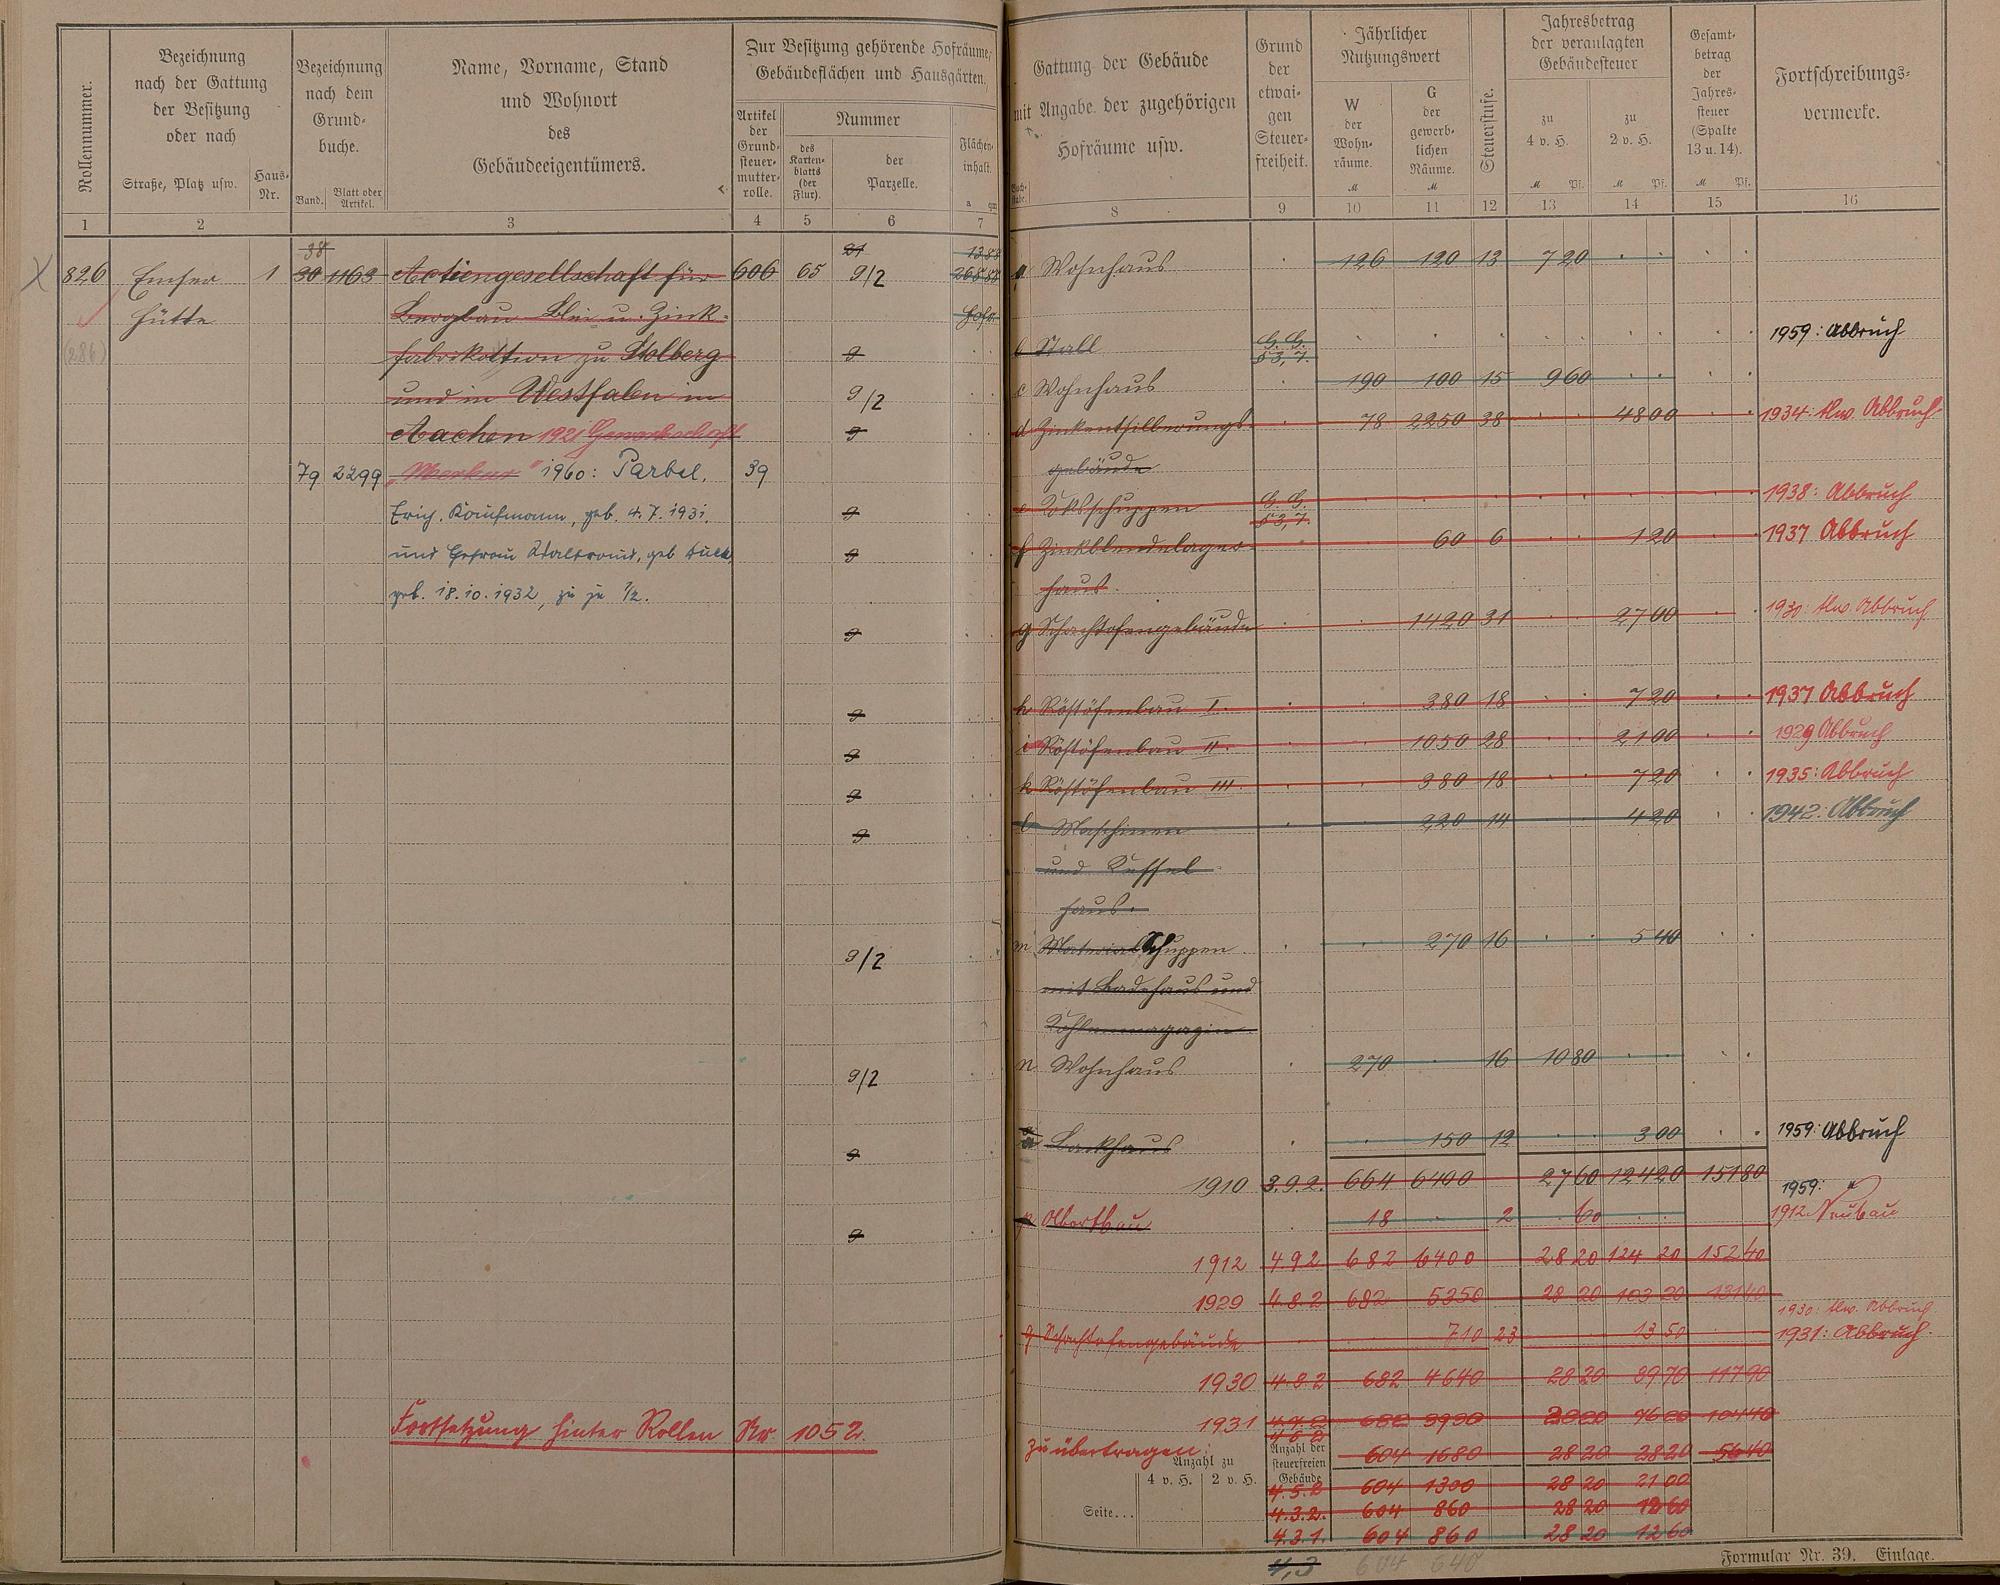 Rollennummer.
Bezeichnung
nach der Gattung
der Besitzung
oder nach
Straße, Platz usw.
Haus-
Nr.
Bezeichnung
nach dem
Grund-
buche.
Band.
Blatt oder
Artikel.
Name, Vorname, Stand
und Wohnort
des
Gebäudeeigentümers.
Zur Besitzung gehörende Hofräume,
Gebäudeflächen und Hausgärten,
Artikel
der
Grund-
steuer-
mutter-
rolle.
Nummer
des
Karten-
blatts
(der
Flur).
der
Parzelle.
Flächen-
inhalt.
a qm
1 2 3 4 5 6 7
38 21 1388
826 Emser 1 30 1163 Actiengesellschaft für 606 65 9/2 26888
Hütte Bergbau Blei u. Zink- Hofr.
(286) fabrikation zu Stolberg 9
und in Westfalen in 9/2
Aachen 1921 Gewerkschaft 9
79 2299 "Merkur" 1960: Parbel, 39
Erich, Kaufmann, geb. 4.7.1931, 9
und Ehefrau Waltraud, geb. 9
geb. 18.10.1932, zu je 1/2.
9
9
9
9
9
9/2
9/2
9
9
Fortsetzung hinter Rollen Nr. 1052.
Gattung der Gebäude
mit Angabe der zugehörigen
Hofräume usw.
Buch-
stabe.
Grund
der
etwai-
gen
Steuer-
freiheit.
Jährlicher
Nutzungswert
W
der
Wohn-
räume.
M
G
der
gewerb-
lichen
Räume.
M
Steuerstufe.
Jahresbetrag
der veranlagten
Gebäudesteuer
zu
4 v. H.
M Pf.
zu
2 v. H.
M Pf.
Gesamt-
betrag
der
Jahres-
steuer
(Spalte
13 u. 14).
M Pf.
Fortschreibungs-
vermerke.
8 9 10 11 12 13 14 15 16
a Wohnhaus 126 120 13 7 20
b Stall G. G. § 3, 7. 1959: Abbruch
c Wohnhaus 190 100 15 9 60
d Zinkentsilberungs- 78 2250 38 48 00 1934: tlw. Abbruch
gebäude
e Koksschuppen G. G. § 3, 7. 1938: Abbruch
f Zinkblendelager- 60 6 1 20 1937 Abbruch
haus.
g Schachtofengebäude 1420 31 27 00 1930: tlw. Abbruch
h Röstöfenbau I. 380 18 7 20 1937 Abbruch
i Röstöfenbau II. 1050 28 21 00 1929 Abbruch
k Röstöfenbau III. 380 18 7 20 1935: Abbruch
l Maschinen 220 14 4 20 1942: Abbruch
und Kessel
haus.
m Material Schuppen 270 16 5 40
mit Badehaus und
Kohlenmagazin
n Wohnhaus 270 16 10 80
o Backhaus 150 12 3 00 1959: Abbruch
1910 3.9.2. 664 6400 27 60 124 20 151 80
1959: "
p Abortbau 18 2 60 1912 Neubau
1912 4.9.2 682 6400 28 20 124 20 152 40
1929 4.8.2 682 5350 28 20 103 20 131 40
1930: tlw. Abbruch
g Schachtofengebäude 710 23 13 50 1931: Abbruch.
1930 4.8.2 682 4640 28 20 89 70 117 90
1931 4.7.2 682 3930 28 20 76 20 104 40
Zu übertragen: 604 1680 28 20 28 20 56 40
Anzahl der
steuerfreien
Gebäude
Anzahl zu
4 v. H. 2 v. H.
4.5.2 604 1300 28 20 21 00
Seite...
4.3.2. 604 860 28 20 12 60
4.3.1. 604 860 28 20 12 60
4,3 604 640
Formular Nr. 39. Einlage.